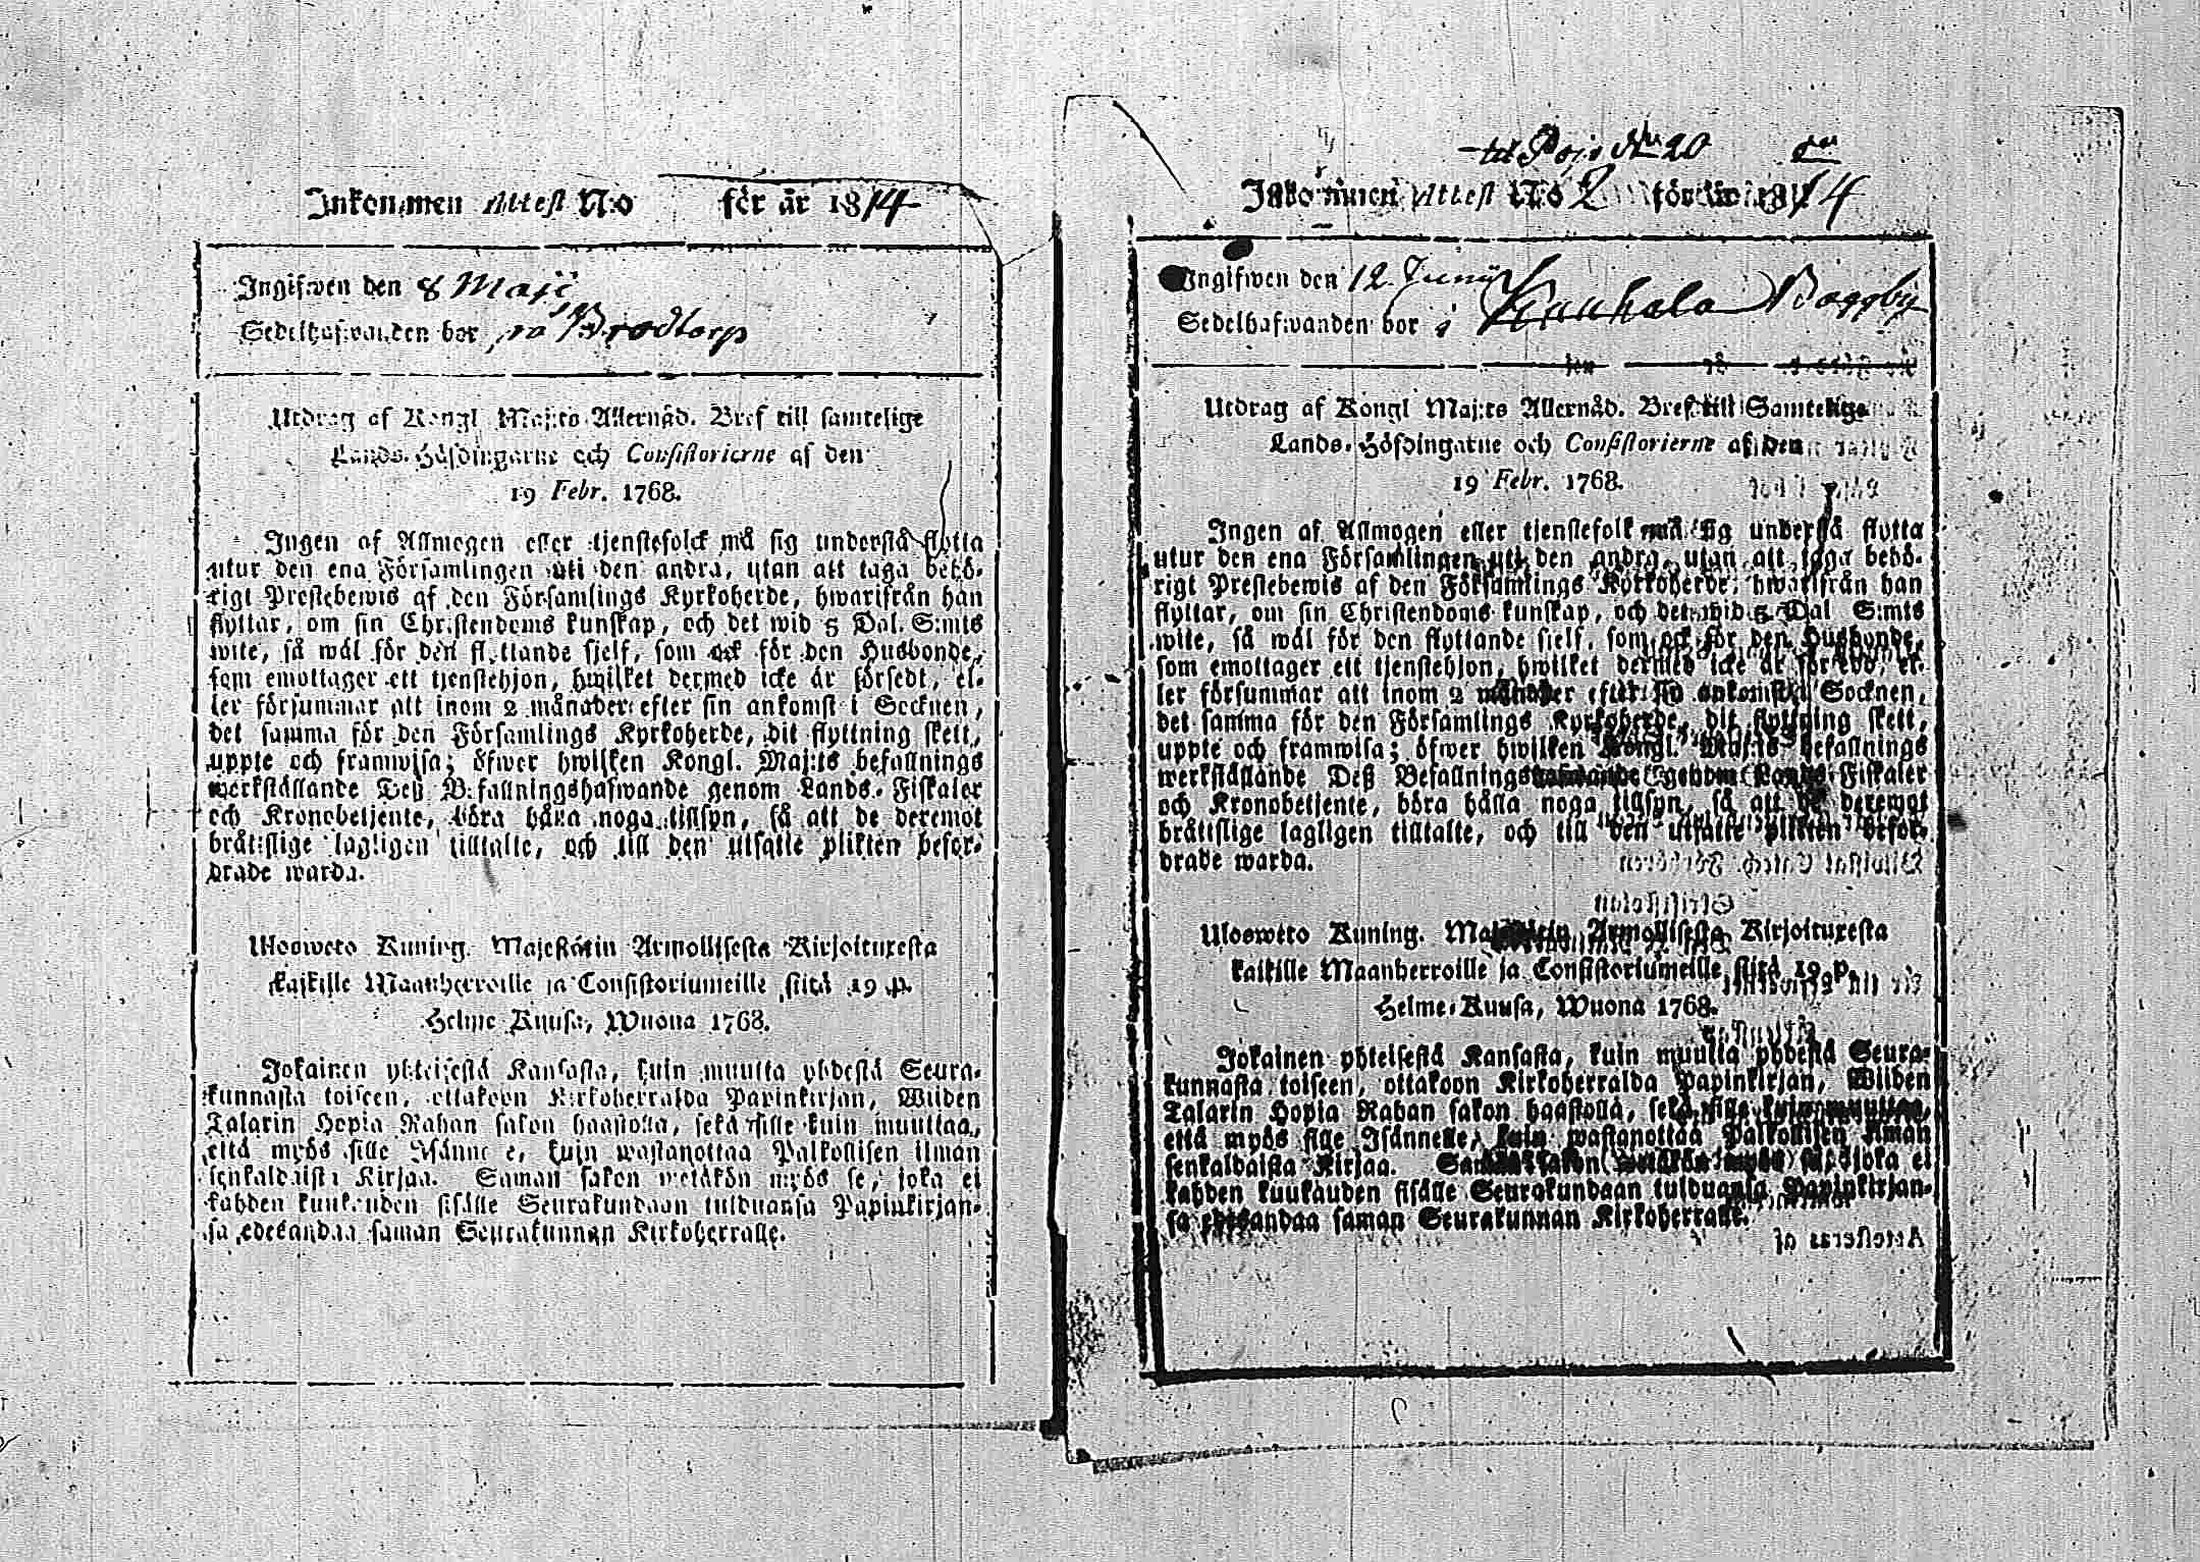 Inkommen Attest N:o för år 1814
Ingifwen den 8 Maji
Sedelhafwanden bor på Brödtorp
Utdrag af Kongl Maj:ts Allernåd. Bref till samtelige
Lands-Höfdingarne och Consistorierne af den
19 Febr. 1768.
Ingen af Allmogen eller tjenstefolck må sig understå flytta
utur den ena Församlingen uti den andra, utan att taga behö-
rigt Prestebewis af den Församlings Kyrkoherde, hwarifrån han
flyttar, om sin Christendoms kunskap, och det wid 5 Dal. S:mts
wite, så wäl för den flyttande sjelf, som ock för den Husbonde,
som emottager ett tjenstehjon, hwilket dermed icke är försedt, el-
ler försummar att inom 2 månader efter sin ankomst i Socknen,
det samma för den Församlings Kyrkoherde, dit flyttning skett,
uppte och framwisa; öfwer hwilken Kongl. Maj:ts befallnings
werkställande Deß Befallningshafwande genom Lands-Fiskaler
och Kronobetjente, böra hålla noga tillsyn, så att de deremot
bråttslige lagligen tilltalte, och till den utsatte plikten befor-
drade warda.
Ulosweto Kuning. Majestätin Armollisesta Kirjoituxesta
kaikille Maanherroille ja Consistoriumeille siitä 19 p.
Helme-Kuusa, Wuona 1768.
Jokainen yhteisestä Kansasta, kuin muutta yhdestä Seura-
kunnasta toiseen, ottakoon Kirkoherralda Papinkirjan, Wiiden
Talarin Hopia Rahan sakon haastolla, sekä sille kuin muuttaa,
että myös sille Isännelle, kuin wastanottaa Palkollisen ilman
senkaldaista Kirjaa. Saman sakon wetäkön myös se, joka ei
kahden kuukauden sisälle Seurakundaan tulduansa Papinkirjan-
sa edesandaa saman Seurakunnan Kirkoherralle.
til Pojo 20
Inkommen Attest N:o 2 för år 1814
Ingifwen den 12 Junii
Sedelhafwanden bor i Baggby
Utdrag af Kongl Maj:ts Allernåd. Bref till Samtelige
Lands-Höfdingarne och Consistorierne af den
19 Febr. 1768.
Ingen af Allmogen eller tjenstefolk må sig understå flytta
utur den ena Församlingen uti den andra, utan att taga behö-
rigt Prestebewis af den Församlings Kyrkoherde, hwarifrån han
flyttar, om sin Christendoms kunskap, och det wid 5 Dal S:mts
wite, så wäl för den flyttande sjelf, som ock för den Husbonde,
som emottager ett tjenstehjon, hwilket dermed icke är försedd, el-
ler försummar att inom 2 månader efter sin ankomst i Socknen,
det samma för den Församlings Kyrkoherde, dit flyttning skett,
uppte och framwisa; öfwer hwilken Kongl. Maj:ts befallnings
werkställande Deß Befallningshafwande genom Lands-Fiskaler
och Kronobetjente, böra hålla noga tillsyn, så att de deremot
bråttslige lagligen tilltalte, och till den utsatte plikten befor-
drade warda.
Ulosweto Kuning. Majestätin Armollisesta Kirjoituxesta
kaikille Maanherroille ja Consistoriumeille siitä 19 p.
Helme-Kuusa, Wuona 1768.
Jokainen yhteisestä Kansasta, kuin muutta yhdestä Seura-
kunnasta toiseen, ottakoon Kirkoherralda Papinkirjan, Wiiden
Talarin Hopia Rahan sakon haastolla, sekä sille kuin muuttaa,
että myös sille Isännelle, kuin wastanottaa Palkollisen ilman
senkaldaista Kirjaa. Saman sakon wetäkön myös se, joka ei
kahden kuukauden sisälle Seurakundaan tulduansa Papinkirjan-
sa edesandaa saman Seurakunnan Kirkoherralle.